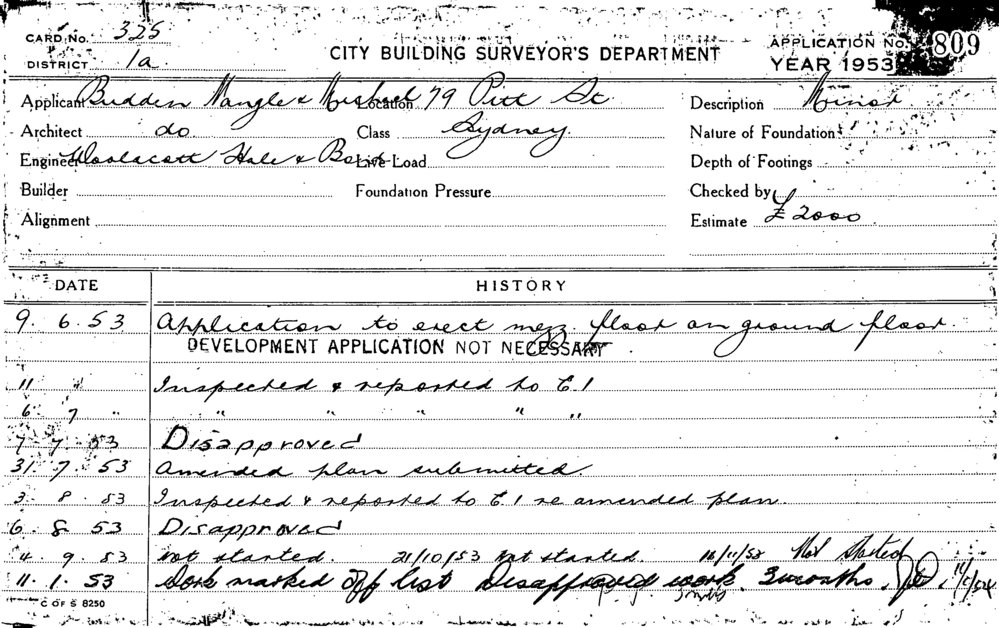 CARD No. 325
DISTRICT 1a
CITY BUILDING SURVEYOR'S DEPARTMENT
APPLICATION No. 809
YEAR 1953
Applicant Budden Nangle & Michael Location 79 Pitt St.
Description Minor
Architect do Class Sydney
Nature of Foundation
Engineer Woolacott Hale & Live Load
Depth of Footings
Builder Foundation Pressure
Checked by
Alignment
Estimate £2000
DATE HISTORY
9. 6. 53 Application to erect mezz. floor on ground floor.
DEVELOPMENT APPLICATION NOT NECESSARY
11 " Inspected & reported to E.1
6 7 " " " " " "
7. 7. 53 Disapproved
31. 7. 53 Amended plan submitted
3. 8. 53 Inspected & reported to E.1 re amended plan.
6. 8 53 Disapproved
4. 9. 53 Not started. 21/10/53 Not started. 16/11/53 Not started
11. 1. 53 Work marked off list Disapproved work 3 months.
C OF S 8250